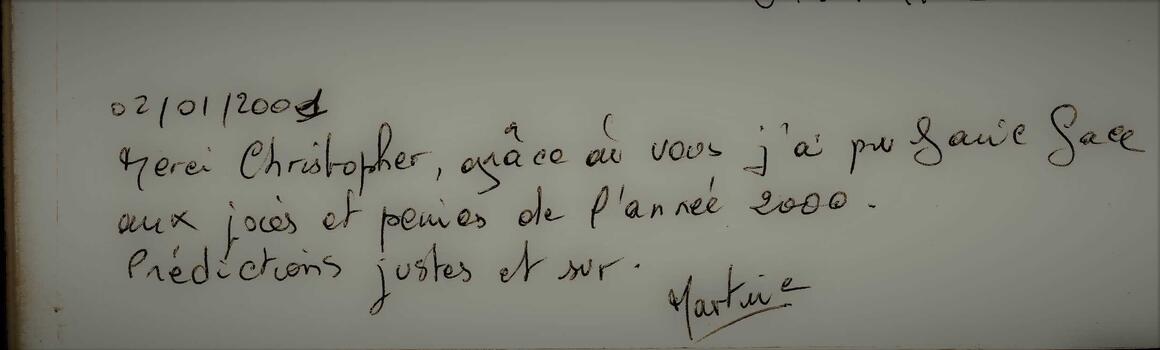 02/01/2001
Merci Christopher, grâce à vous j'ai pu faire face
aux joies et peines de l'année 2000.
Prédictions justes et sur.
Martine